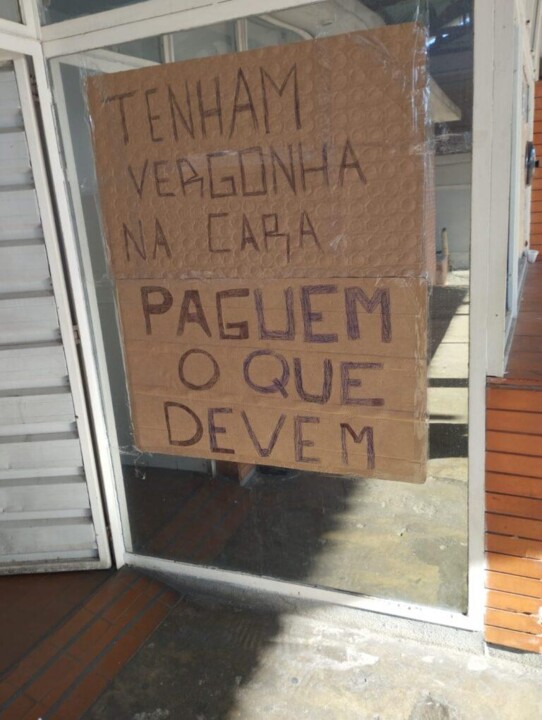 TENHAM
VERGONHA
NA CARA
PAGUEM
O QUE
DEVEM